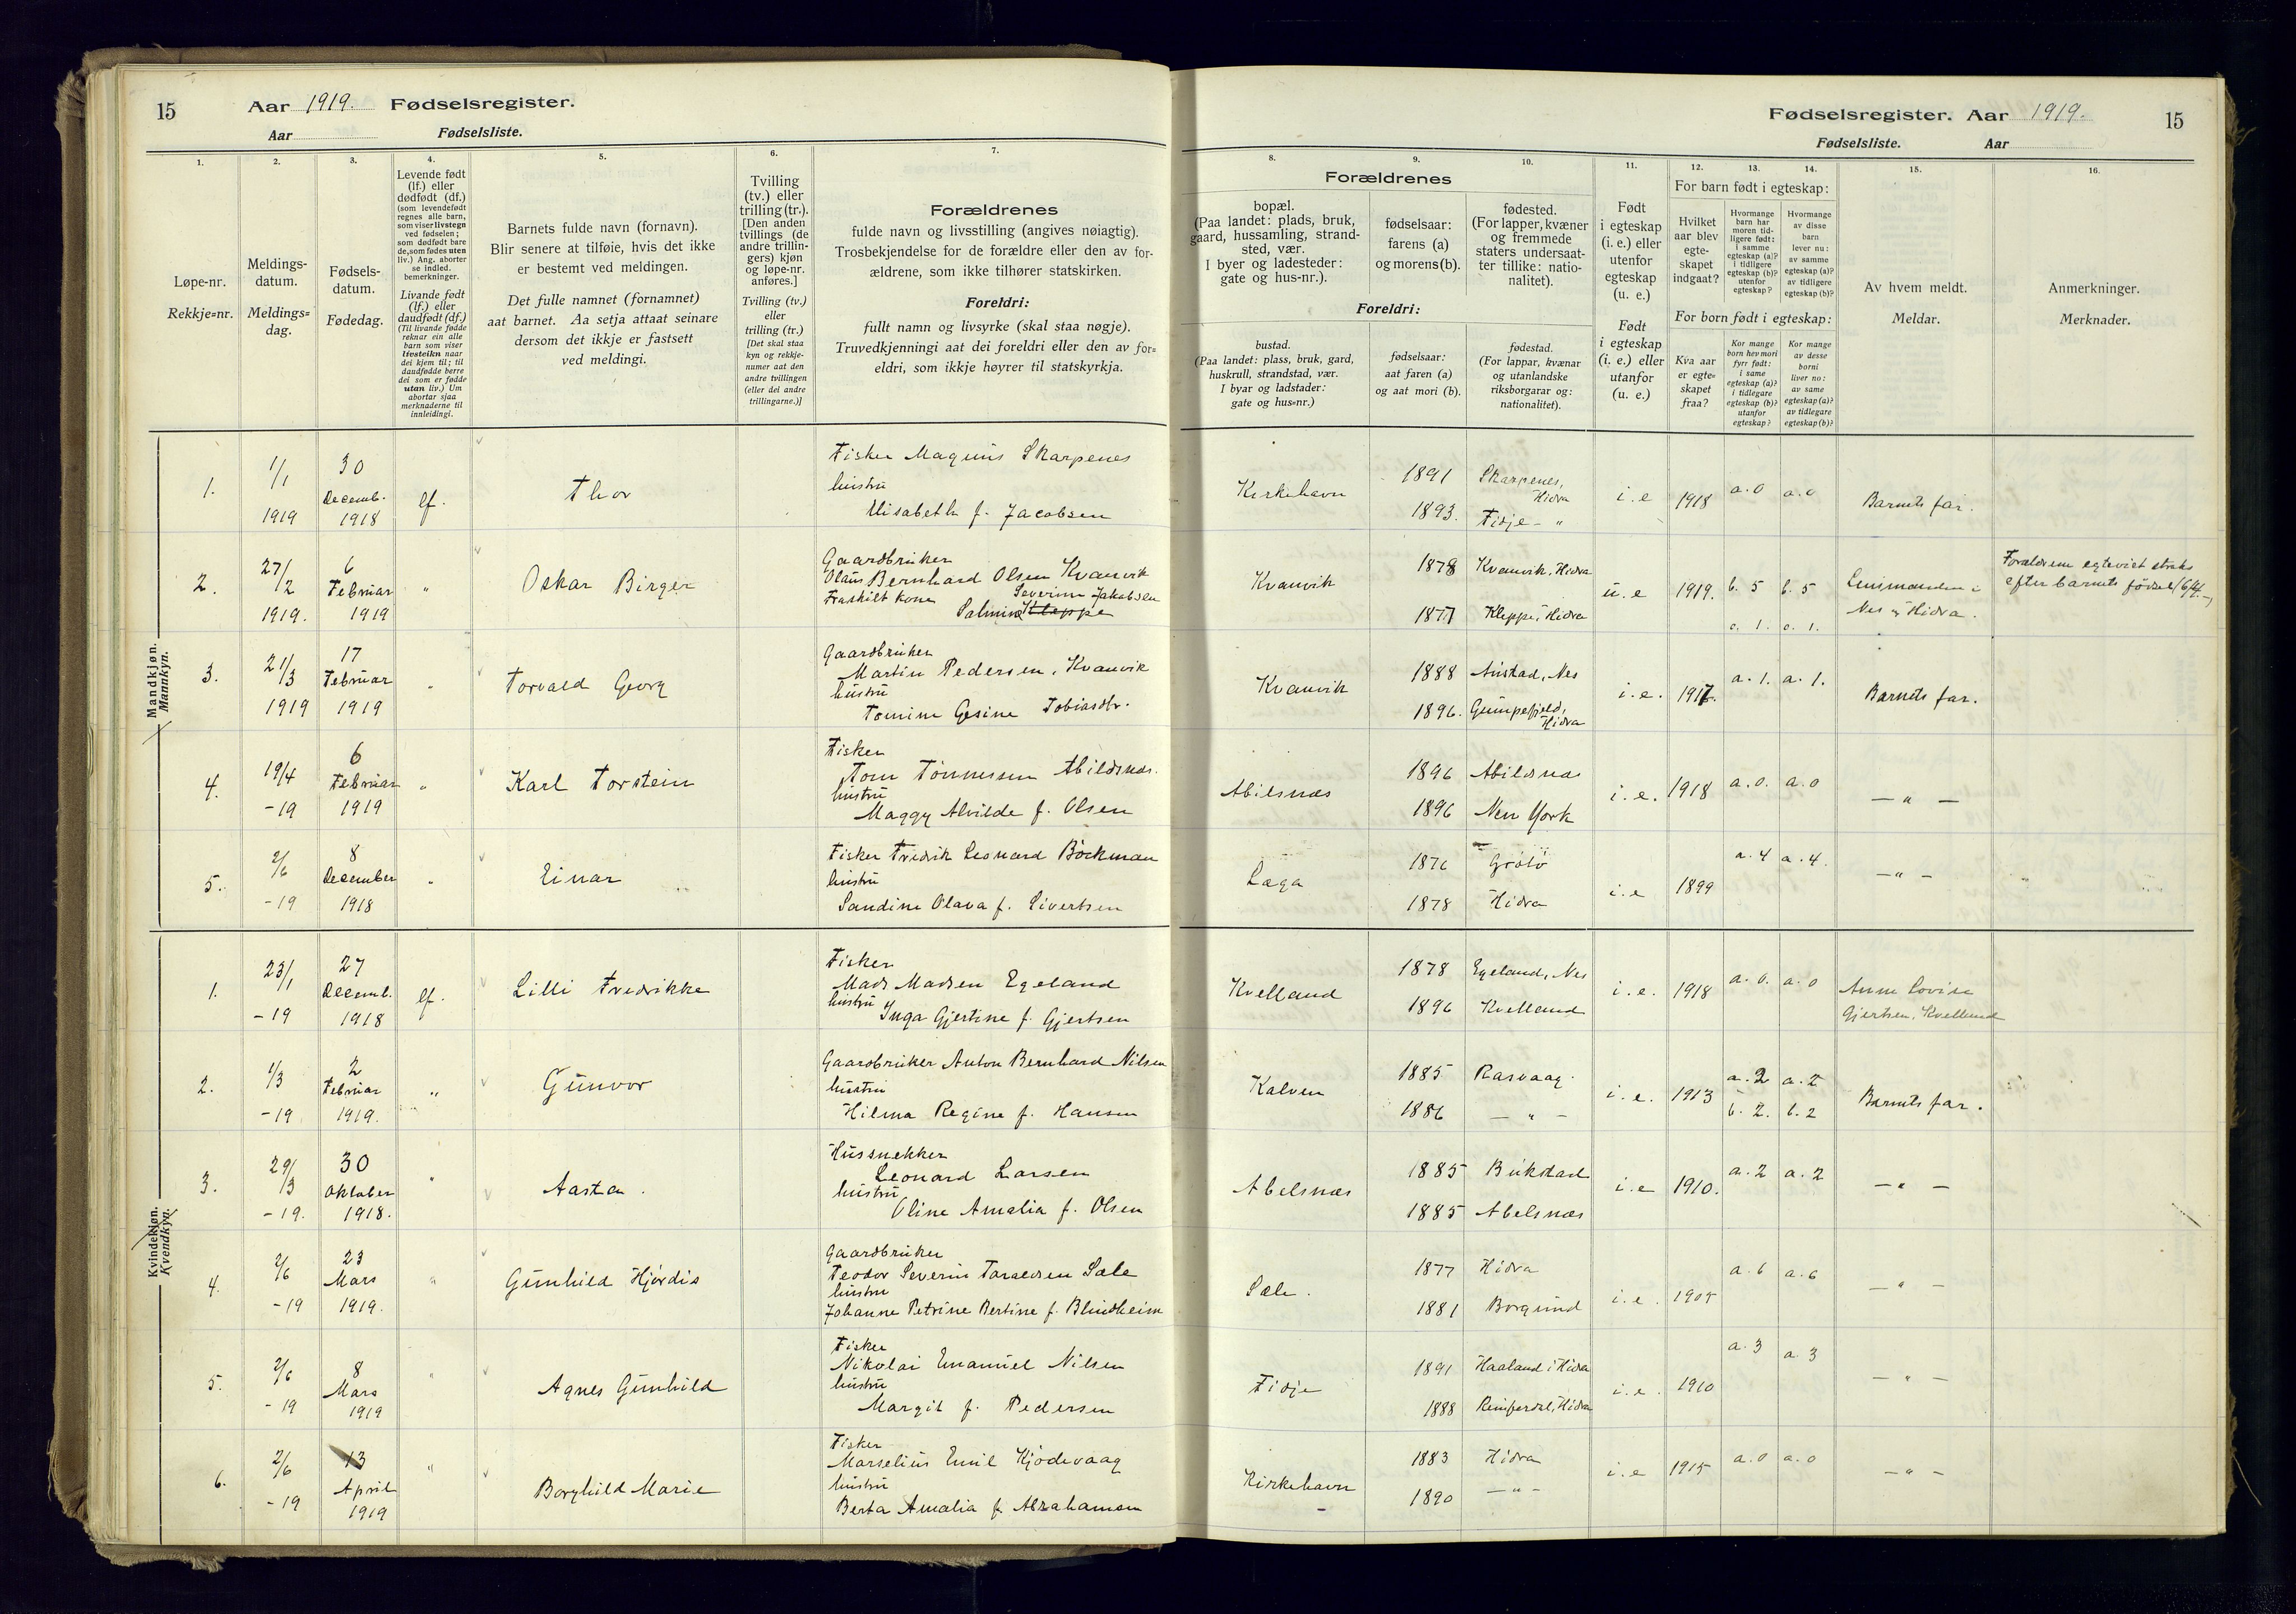 15
Aar 1919. Fødselsregister.
Aar Fødselsliste.
1.
2.
3.
4.
5.
6.
7.
Løpe-nr.
Rekkje=nr.
Meldings-
datum.
Meldings=
dag.
Fødsels-
datum.
Fødedag.
Levende født
(lf.) eller
dødfødt (df.)
(som levendefødt
regnes alle barn,
som viser livstegn
ved fødselen;
som dødfødt bare
de, som fødes uten
liv.) Ang. aborter
se indled.
bemerkninger.
Livande født
(lf.) eller
daudfødt (df.)
(Til livande fødde
reknar ein alle
barn som viser
livsteikn naar
dei kjem til; til
daudfødde berre
dei som er fødde
utan liv.) Um
abortar sjaa
merknaderne til
innleidingi.
Barnets fulde navn (fornavn).
Blir senere at tilføie, hvis det ikke
er bestemt ved meldingen.
Det fulle namnet (fornamnet)
aat barnet. Aa setja attaat seinare
dersom det ikkje er fastsett
ved meldingi.
Tvilling
(tv.) eller
trilling (tr.).
[Den anden
tvillings (de
andre trillin-
gers) kjøn
og løpe-nr.
anføres.]
Tvilling (tv.)
eller
trilling (tr.)
[Det skal staa
kyn og rekkje-
numer aat den
andre tvillingen
(eller dei andre
trillingarne.)]
Forældrenes
fulde navn og livsstilling (angives nøiagtig).
Trosbekjendelse for de forældre eller den av for-
ældrene, som ikke tilhører statskirken.
Foreldri:
fullt namn og livsyrke (skal staa nøgje).
Truvedkjenningi aat dei foreldri eller den av for=
eldri, som ikkje høyrer til statskyrkja.
Mandkjøn.
Mannkyn.
1.
1/1
1919
30
Decemb.
1918
lf.
Thor
Fisker Magnus Skarpenes
hustru
Elisabeth f. Jacobsen
2.
27/2
1919.
6
Februar
1919
"
Oskar Birger
Gaardbruker
Olaus Bernhard Olsen Kvanvik
Fraskilt kone Severine Jakobsen
Salmine Kleppe
3.
21/3
1919
17
Februar
1919
"
Torvald Georg
Gaardbruker
Martin Pedersen, Kvanvik
hustru
Tomine Gesine Tobiasdtr.
4.
19/4
-19
6
Februar
1919
"
Karl Torstein
Fisker
Tom Tønnessen Abildsnæs.
hustru
Maggy Alvilde f. Olsen
5.
2/6
-19
8
December
1918
"
Einar
Fisker Fredrik Leonard Böckman
hustru
Sandine Olava f. Sivertsen
Kvindekjøn.
Kvendkyn.
1.
23/1
-19
27
Decemb.
1918
lf.
Lilli Fredrikke
Fisker
Mads Madsen Egeland
hustru
Inga Gjertine f. Gjertsen
2.
1/3
-19
2
Februar
1919.
"
Gunvor
Gaardbruker Anton Bernhard Nilsen
hustru
Hilma Regine f. Hansen
3.
29/3
-19.
30
Oktober
1918.
"
Aasta.
Hussnekker
Leonard Larsen
hustru
Oline Amalia f. Olsen
4.
2/6
-19
23
Mars
1919.
"
Gunhild Hjørdis
Gaardbruker
Teodor Severin Taraldsen Sæle
hustru
Johanne Petrine Bertine f. Blindheim
5.
2/6
-19
8
Mars
1919
"
Agnes Gunhild
Fisker
Nikolai Emanuel Nilsen
hustru
Margit f. Pedersen
6.
2/6
-19
13
April
1919
"
Borghild Marie
Fisker
Marselius Emil Kjödevaag
hustru
Berta Amalia f. Abrahamsen
Fødselsregister. Aar 1919.
15
Fødselsliste. Aar
8.
9.
10.
11.
12.
13.
14.
15.
16.
Forældrenes
bopæl.
(Paa landet: plads, bruk,
gaard, hussamling, strand-
sted, vær.
I byer og ladesteder:
gate og hus-nr.).
fødselsaar:
farens (a)
og morens (b).
fødested.
(For lapper, kvæner
og fremmede
staters undersaat-
ter tillike: natio-
nalitet).
Foreldri:
bustad.
(Paa landet: plass, bruk, gard,
huskrull, strandstad, vær.
I byar og ladstader:
gate og hus=nr.)
fødselsaar:
aat faren (a)
og aat mori (b).
fødestad.
(For lappar, kvænar
og utanlandske
riksborgarar og:
nationalitet).
Født
i egteskap
(i. e.) eller
utenfor
egteskap
(u. e.)
Født
i egteskap
(i. e.) eller
utanfor
(u. e.)
For barn født i egteskap:
Hvilket
aar blev
egte-
skapet
indgaat?
Hvormange
barn har
moren tid-
ligere født:
i samme
egteskap (a)?
i tidligere
egteskap (b)?
utenfor
egteskap?
Hvormange
av disse
barn
lever nu:
av samme
egteskap (a)?
av tidligere
egteskap (b)?
For born født i egteskap:
Kva aar
er egte=
skapet
fraa?
Kor mange
born hev mori
fyrr født:
i same
egteskap (a)?
i tidlegare
egteskap (b)?
utanfor
egteskap?
Kor mange
av desse
borni
liver no:
av same
egteskap (a)?
av tidlegare
egteskap (b)?
Av hvem meldt.
Meldar.
Anmerkninger.
Merknader.
Kirkehavn
1891
1893.
Skarpenes,
Hidra
Fidje - "
i. e
1918
a. 0
a. 0
Barnets far.
Kvanvik
1878
1877
Kvanvik, Hidra
Kleppe, Hidra
u. e
1919.
b. 5
b. 5
c. 1.
c. 1.
Lensmanden i
Nes og Hidra.
Forældrene egteviet straks
efter barnets fødsel
Kvanvik
1888
1896.
Austad, Nes
Gumpefjeld,
Hidra
i. e.
1917.
a. 1.
a. 1.
Barnets far.
Abilsnæs
1896
1896
Abildsnæs
New York
i. e.
1918
a. 0.
a. 0
— " —
Laga
1876
1878
Hidra
i. e
1899
a. 4
a. 4.
— " —
Kvelland
1878
1896
Egeland, Nes
Kvelland
i. e.
1918
a. 0.
a. 0
Anne Lovise
Gjertsen, Kvelland
Kalven
1885
1886
Rasvaag.
— " —
i. e.
1913
a. 2
a. 2
b. 2.
b. 2
Barnets far.
Abelsnæs
1885
1885
Bukstad
Abelsnæs
i. e
1910.
a. 2
a. 2
— " —
Sæle.
1877
1881
Hidra
Borgund
i. e.
1905
a. 6
a. 6
— " —
Fidje
1891
1888
Haaland i Hidra
i. e.
1910
a. 3
a. 3
— " —
Kirkehavn
1883
1890
Hidra
— " —
i. e
1915
a. 0
a. 0
— " —